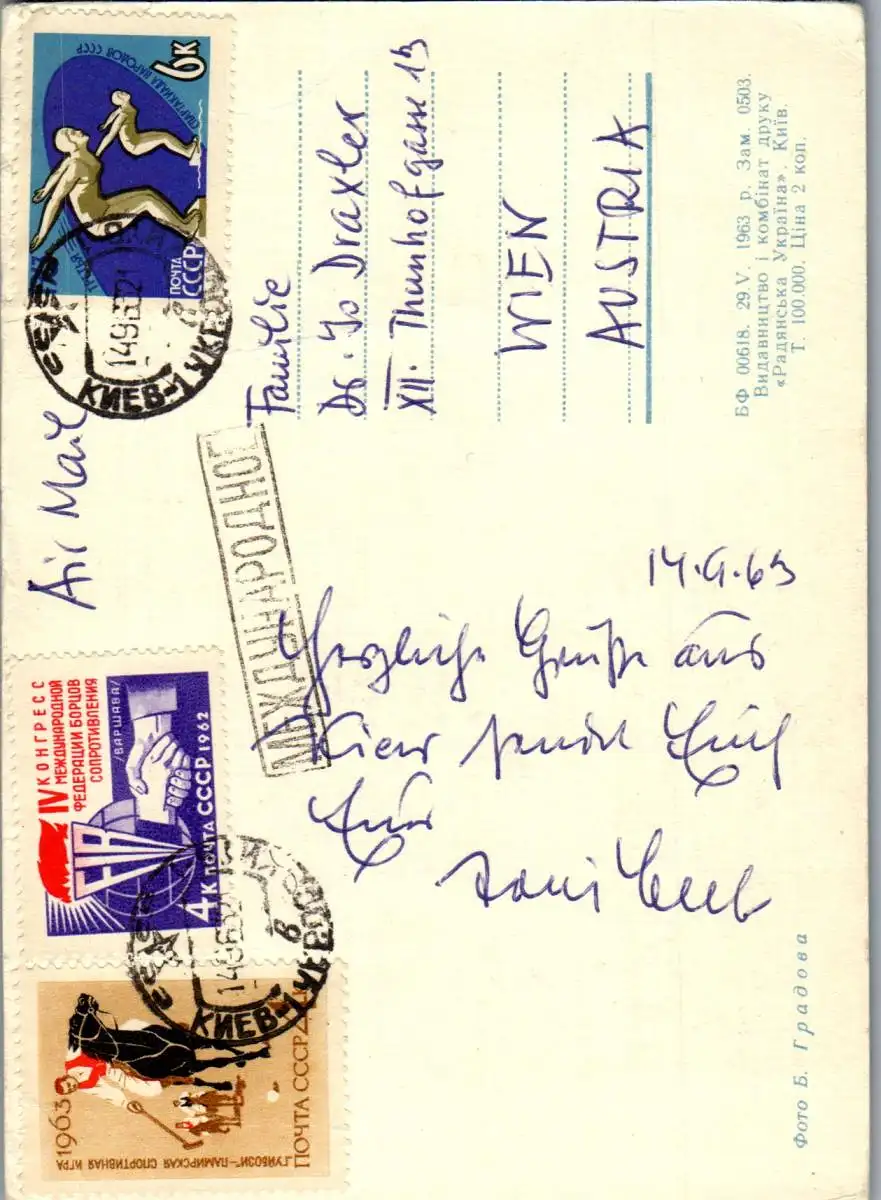 14.9.63
Herzliche Grüße aus
Kiew sendet Euch
Euer
Air Mail
МЕЖДУНАРОДНОЕ
Familie
Dr. Jo Draxler
XII. Thunhofgasse 13
WIEN
AUSTRIA
БФ 00618. 29.V. 1963 р. Зам. 0503.
Видавництво і комбінат друку
«Радянська Україна». Київ.
Т. 100.000. Ціна 2 коп.
Фото Б. Градова
СПАРТАКИАДА НАРОДОВ СССР
6К
ПОЧТА
СССР
КИЕВ-1 УКР
IV КОНГРЕСС
МЕЖДУНАРОДНОЙ
ФЕДЕРАЦИИ БОРЦОВ
СОПРОТИВЛЕНИЯ
/ВАРШАВА/
FIR
4К ПОЧТА СССР 1962
КИЕВ-1 УКР
1963
"ГУЙБОЗИ"-ПАМИРСКАЯ СПОРТИВНАЯ ИГРА
ПОЧТА СССР